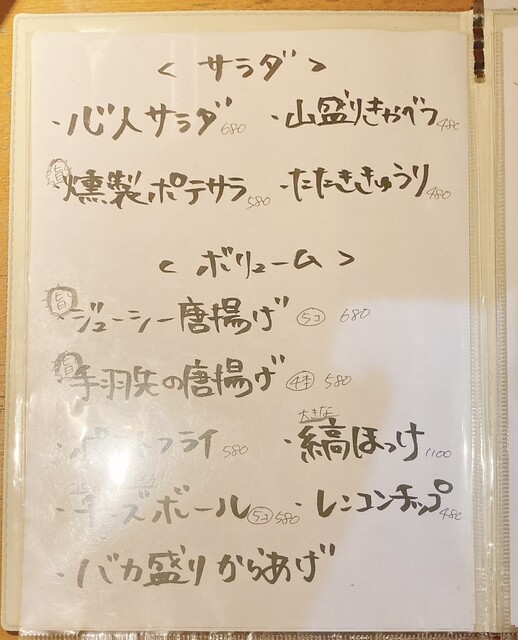 < サラダ >
・心人サラダ 680 ・山盛りきゃべつ 480
旨 燻製ポテサラ 580 ・たたききゅうり 480
< ボリューム >
旨 ・ジューシー唐揚げ 5コ 680
旨 手羽先の唐揚げ 4本 580
・ポテトフライ 580 ・大きな縞ほっけ 1100
・チーズボール 5コ 580 ・レンコンチップ 480
・バカ盛りからあげ